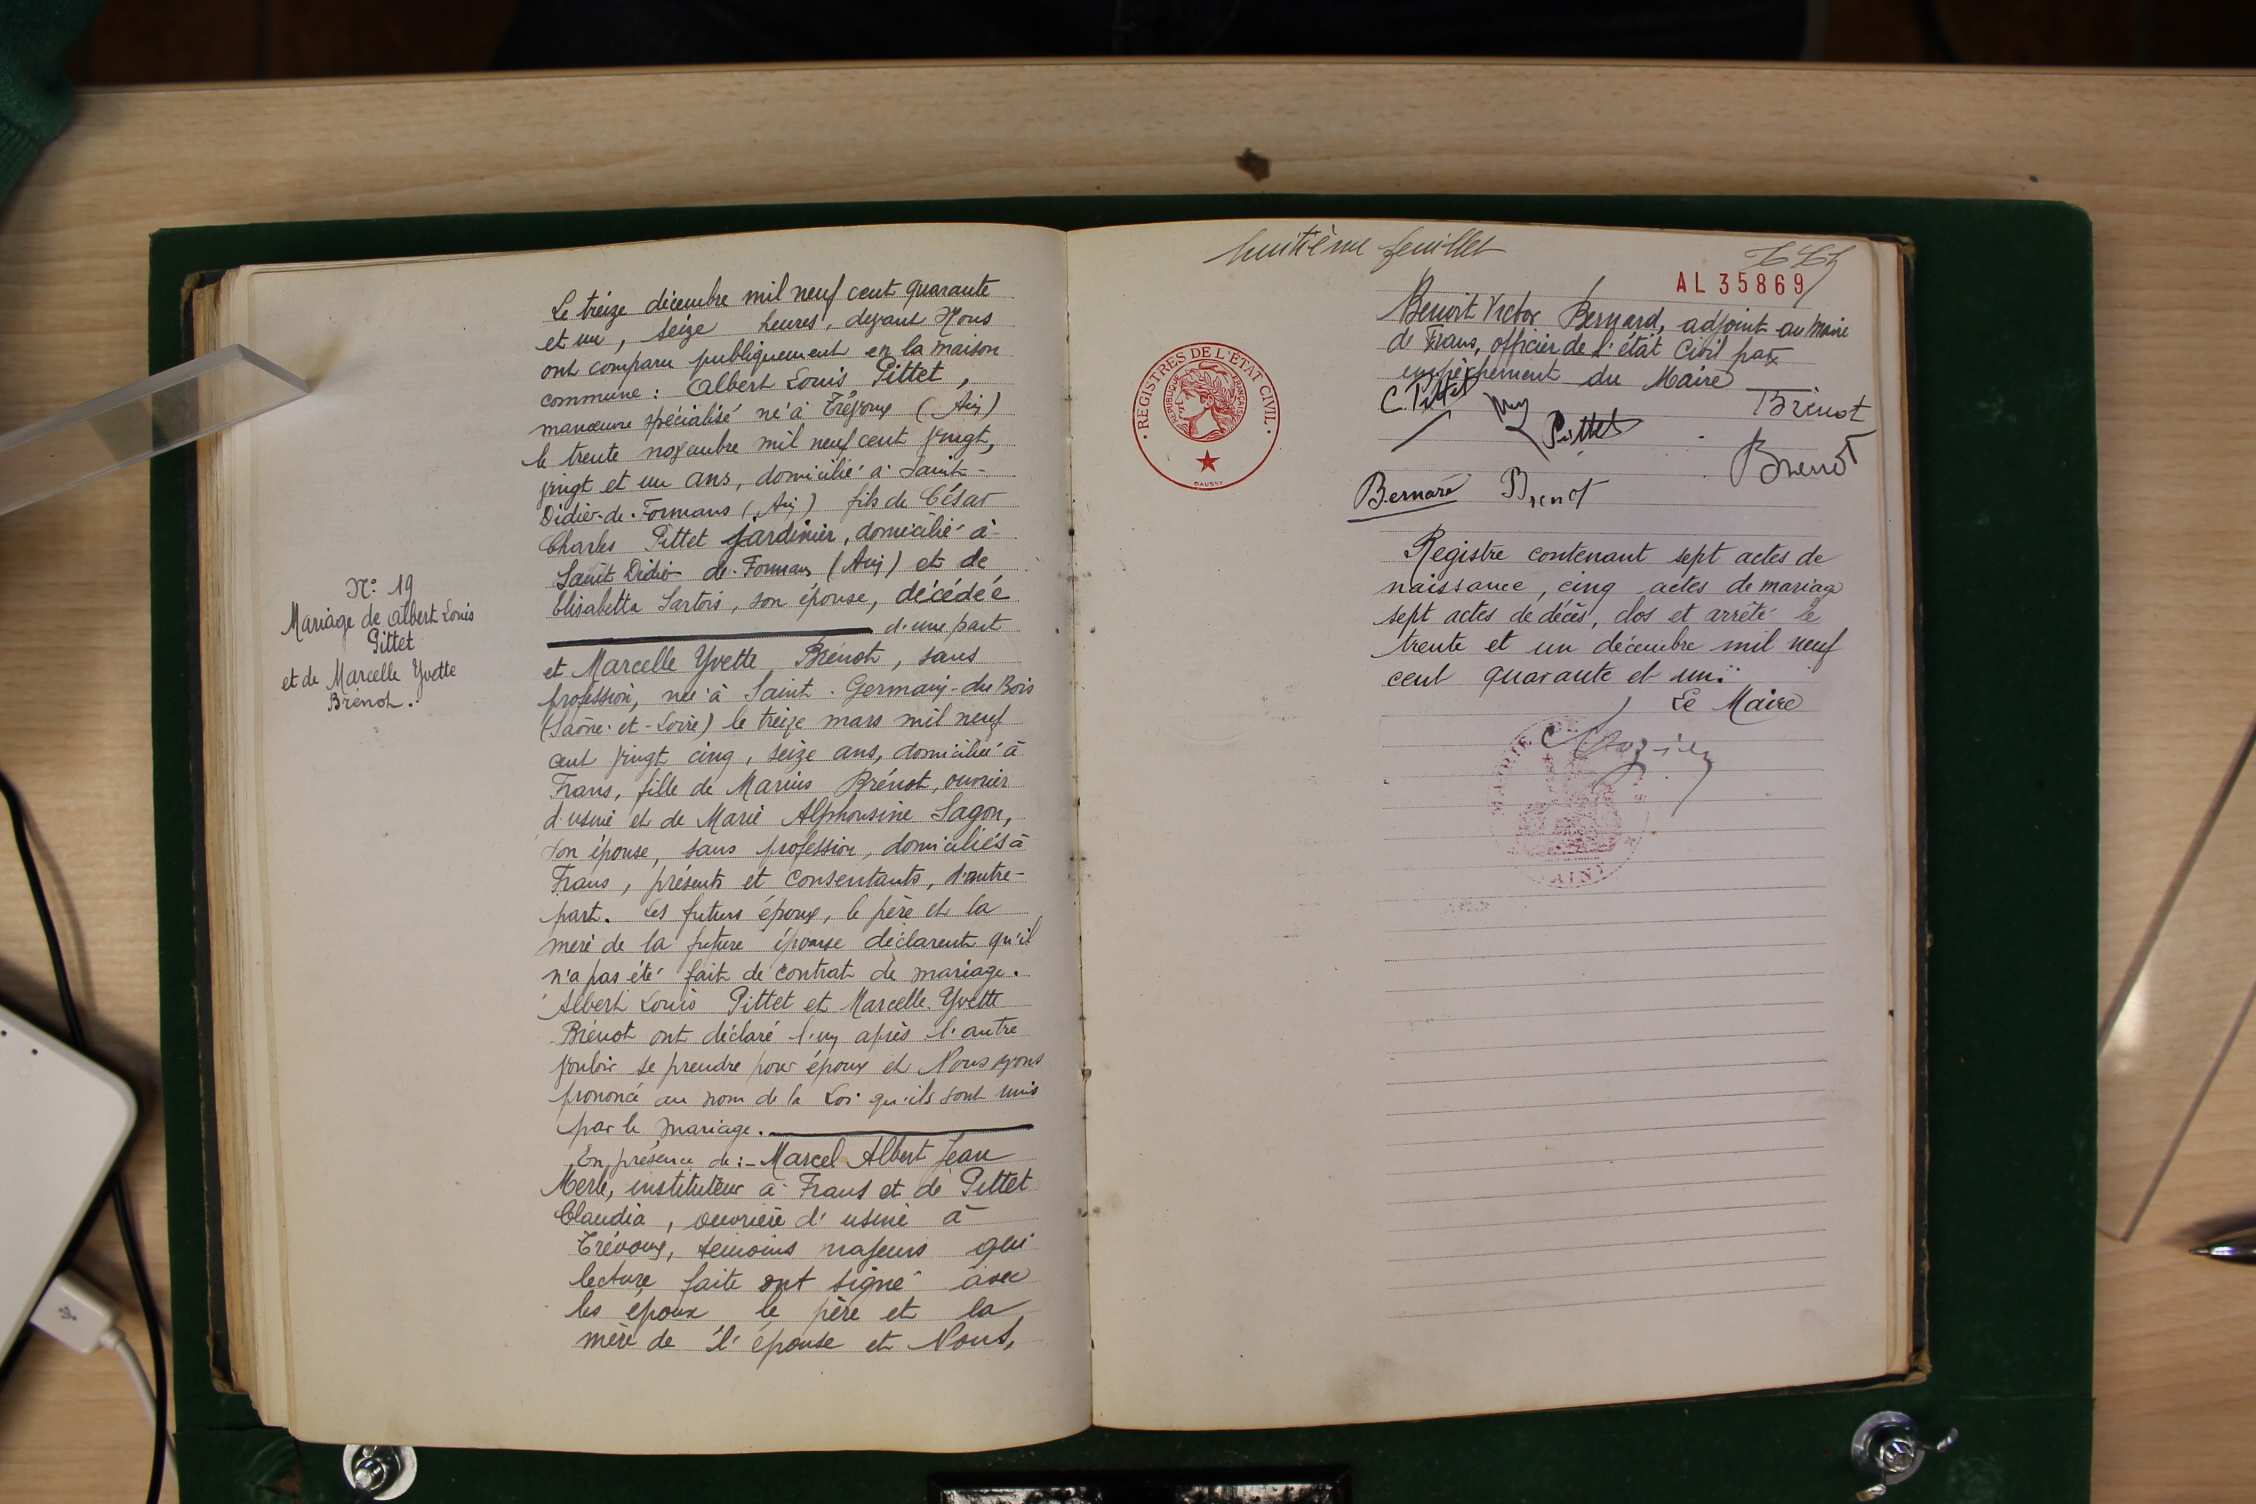 N° 19
Mariage de Albert Louis
Pittet
et de Marcelle Yvette
Brénot.
Le treize décembre mil neuf cent quarante
et un, seize heures, devant Nous
ont comparu publiquement en la maison
commune : Albert Louis Pittet,
manœuvre spécialisé né à Trévoux (Ain)
le trente novembre mil neuf cent vingt,
vingt et un ans, domicilié à Saint-
Didier-de-Formans (Ain) fils de César
Charles Pittet jardinier, domicilié à
Saint Didier de Formans (Ain) et de
Elisabetta Sartori, son épouse, décédée
d'une part
et Marcelle Yvette Brénot, sans
profession, née à Saint-Germain-du Bois
(Saône-et-Loire) le treize mars mil neuf
cent vingt cinq, seize ans, domiciliée à
Frans, fille de Marius Brénot, ouvrier
d'usine et de Marie Alphonsine Sagon,
son épouse, sans profession, domiciliés à
Frans, présents et consentants, d'autre-
part. Les futurs époux, le père et la
mère de la future épouse déclarent qu'il
n'a pas été fait de contrat de mariage.
Albert Louis Pittet et Marcelle Yvette
Brénot ont déclaré l'un après l'autre
vouloir se prendre pour époux et Nous avons
prononcé au nom de la Loi qu'ils sont unis
par le mariage.
En présence de :- Marcel Albert Jean
Merle, instituteur à Frans et de Pittet
Claudia, ouvrière d'usine à
Trévoux, témoins majeurs qui
lecture faite ont signé avec
les époux le père et la
mère de l'épouse et Nous,
huitième feuillet
AL 35869
REGISTRES DE L'ETAT CIVIL
REPUBLIQUE FRANÇAISE
Benoit Victor Bernard, adjoint au Maire
de Frans, officier de l'état Civil par
empêchement du Maire
C. Pittet
Pittet
Brénot
Brenot
Bernard
Brenot
Registre contenant sept actes de
naissance, cinq actes de mariage
sept actes de décès, clos et arrêté le
trente et un décembre mil neuf
cent quarante et un.
Le Maire
MAIRIE DE
AIN